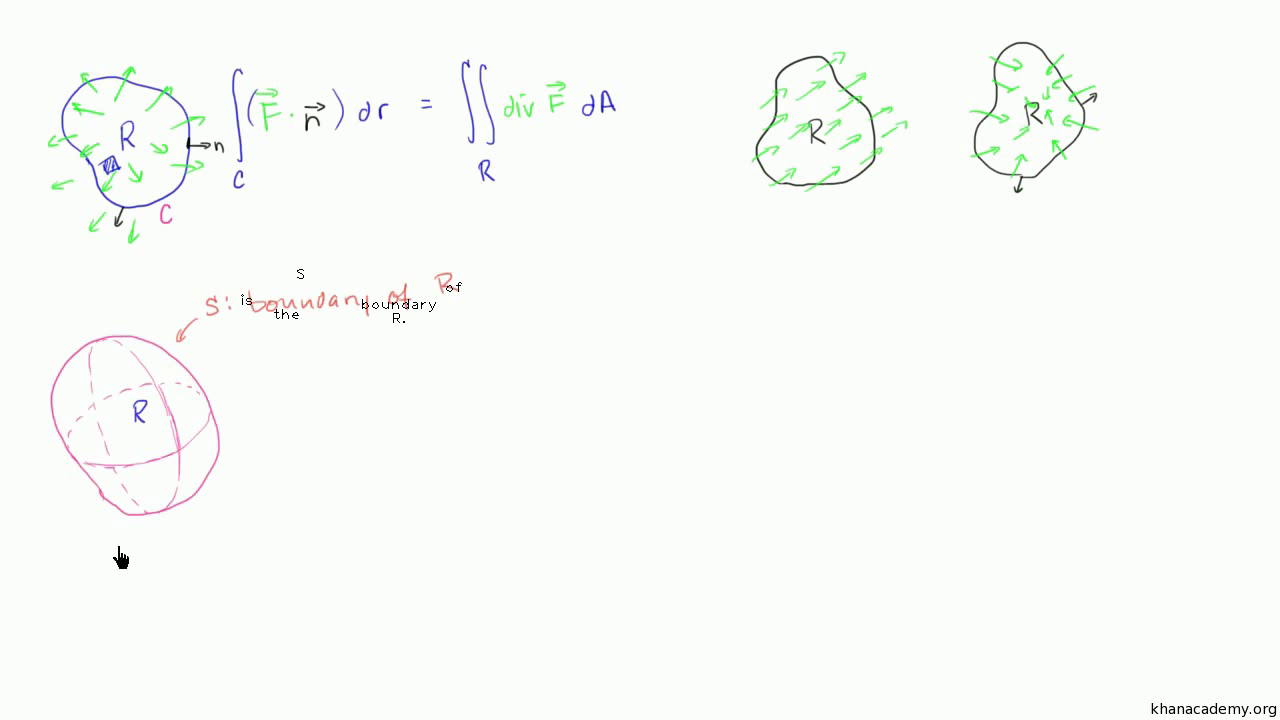 R
n
C
∫_C (F⃗ · n⃗) dr = ∬_R div F⃗ dA
R
R
S: boundary of R
S
is the boundary of R.
R
khanacademy.org